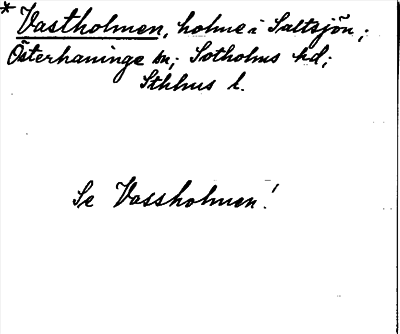 * Vastholmen, holme i Saltsjön;
Österhaninge sn; Sotholms hd;
Sthlms l.
Se Vassholmen!